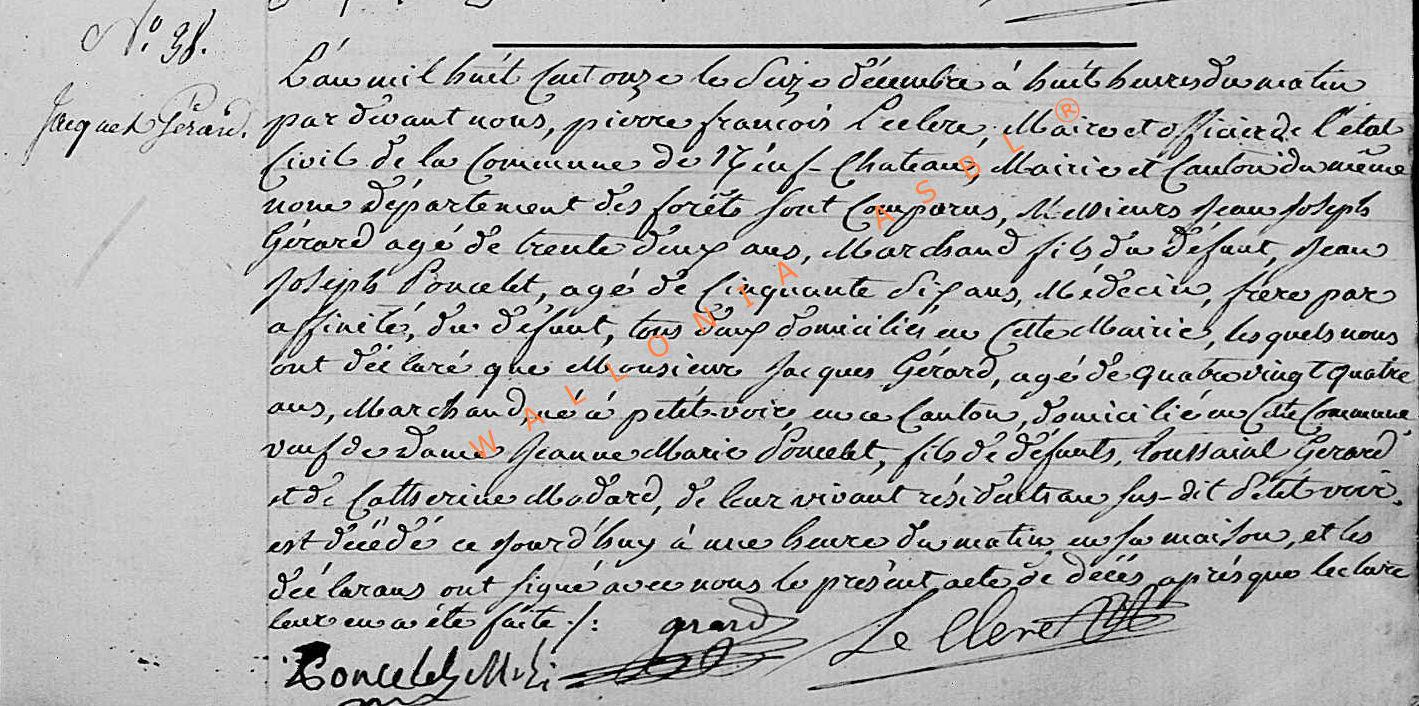 N.º 38.
Jacques Gérard.
L'an mil huit cent onze le seize décembre à huit heures du matin
par devant nous, pierre françois Leclerc, Maire et officier de l'état
Civil de la Commune de Neuf-Chateau, Mairie et Canton du même
nom Département des forêts sont Comparus, Messieurs Jean Joseph
Gérard agé de trente deux ans, Marchand fils du Défunt, Jean
Joseph Poncelet, agé de Cinquante six ans, Médecin, frère par
affinité, du défunt, tous deux domiciliés en Cette Mairie, lesquels nous
ont déclaré que Monsieur Jacques Gérard, agé de quatrevingt quatre
ans, Marchand, né à petit-voir en ce Canton, domicilié en Cette Commune
veuf de Dame Jeanne Marie Poncelet, fils de défunts, Toussaint Gerard
et de Catherine Modard, de leur vivant résidents au sus-dit Petit voir,
est décédé ce Jourd'huy à une heure du matin en sa maison, et les
déclarans ont signé avec nous le présent acte de décès, après que lecture
leur en a été faite ./:
grard
Le Clerc
Poncelet Md.
WALLONIA ASBL ®